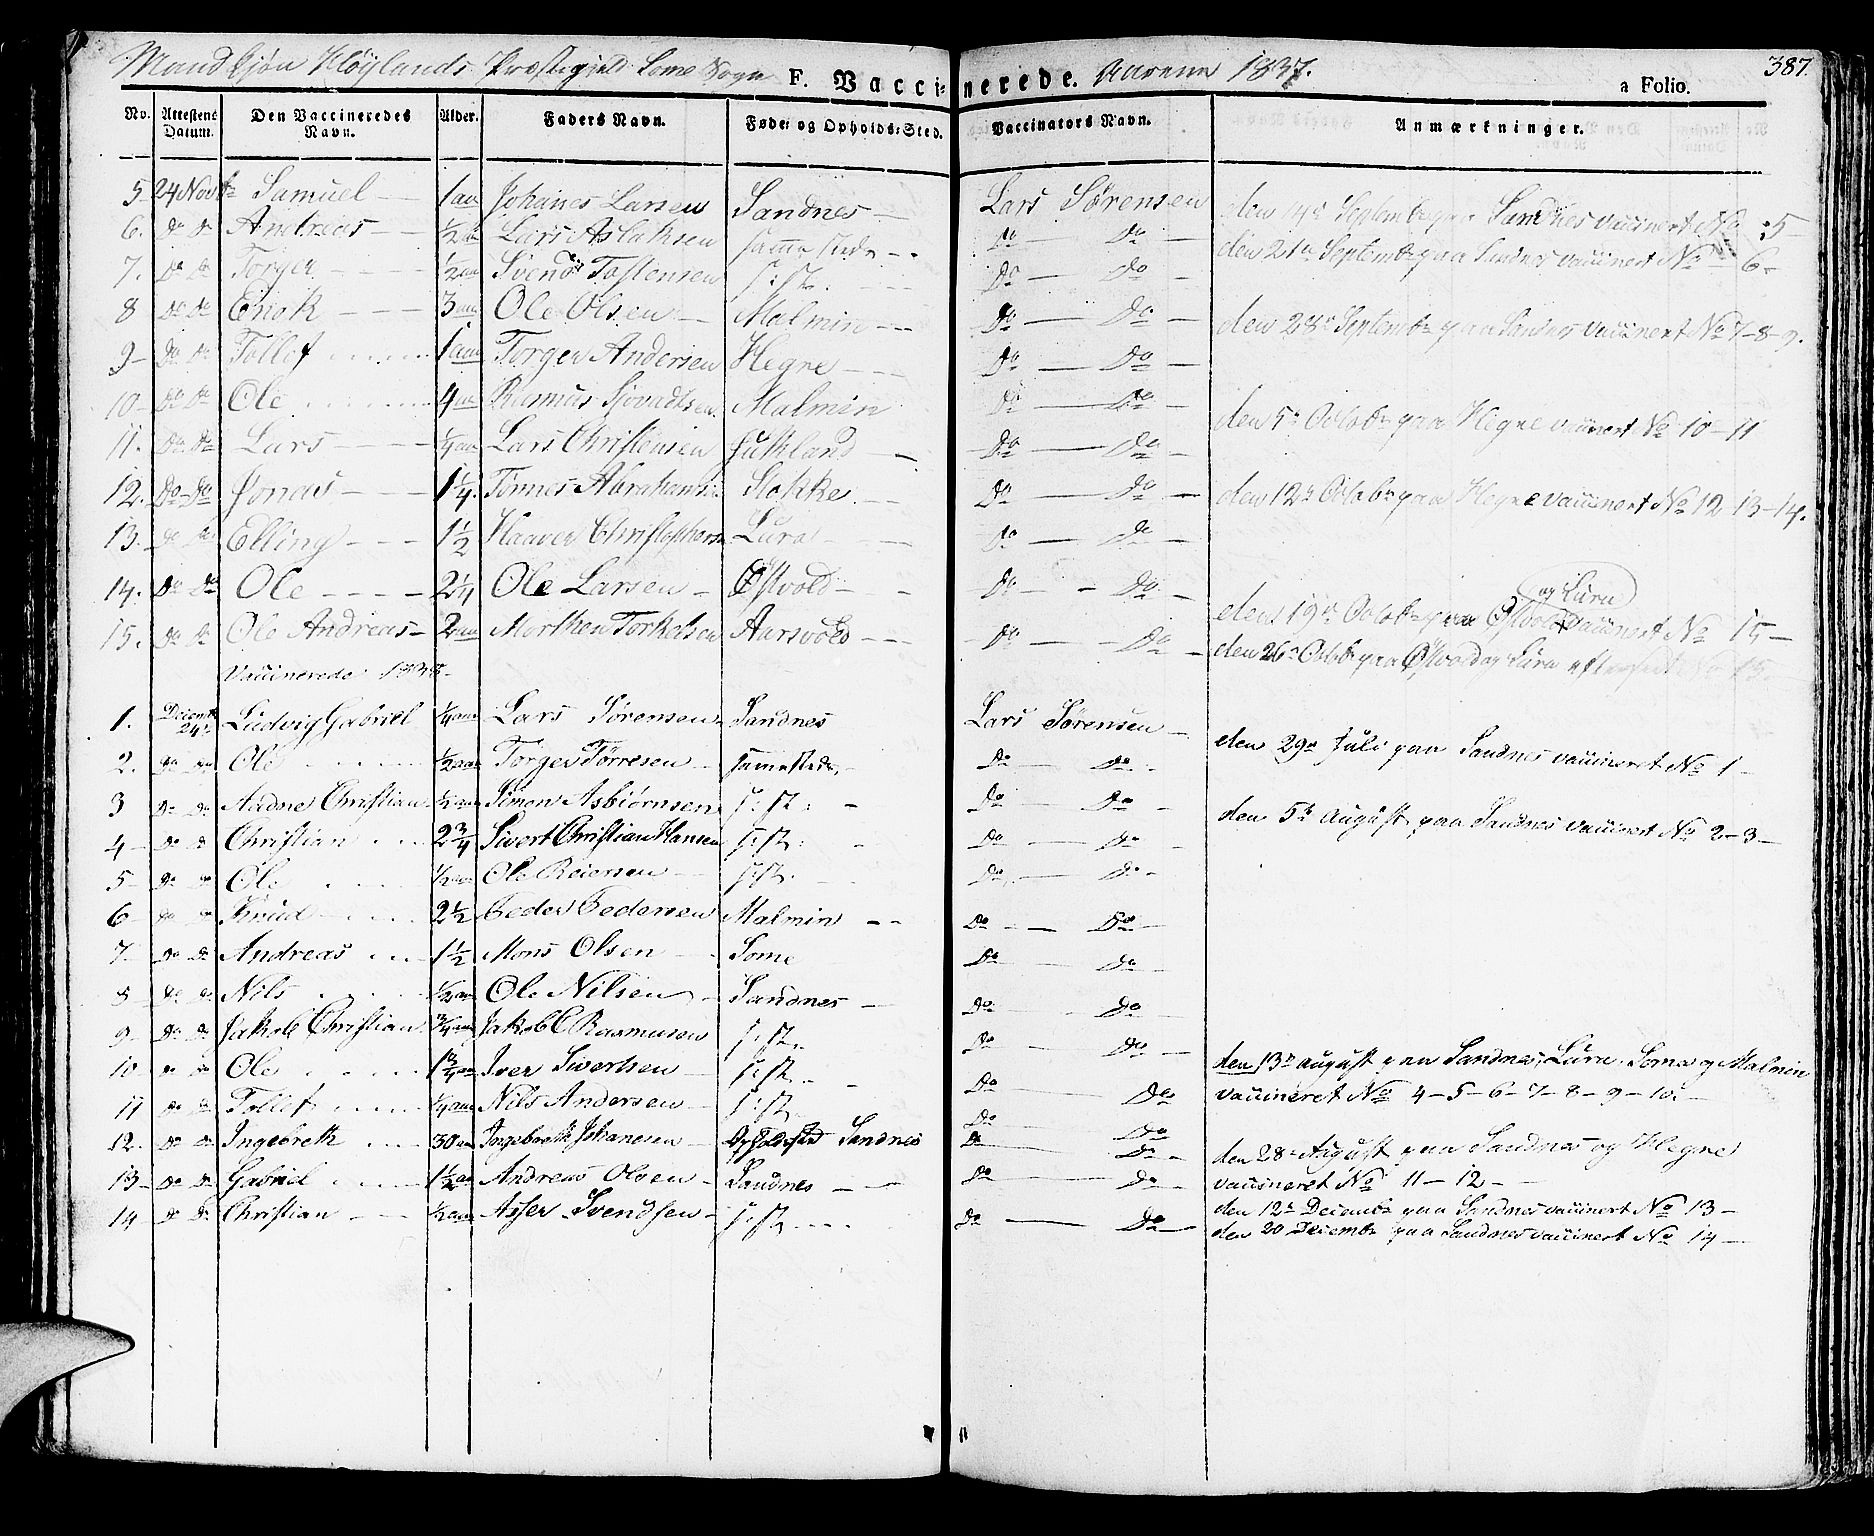 Mandkjøn Höylands Præstegjeld Some Sogn F. Vaccinerede. Aarene 1837. a Folio. 387.
No. Attestens Datum. Den Vaccineredes Navn. Alder. Faders Navn. Føde- og Opholds-Sted. Vaccinators Navn. Anmærkninger.
5 24 Novbr Samuel 1 aar Johanes Larsen Sandnes Lars Sørensen den 14de Septembr paa Sandnes vaccinert No 5
6. Do Do Andreas 1/2 aar Lars Aslaksen samme stede Do Do den 21de Septembr paa Sandnes vaccinert No 6
7. Do Do Torger 1/2 aar Svend Tostensen s: st. Do Do
8 Do Do Enok 3 aar Ole Olsen Malmin Do Do den 28de Septembr paa Sandnes vaccinert No 7-8-9.
9 Do Do Tollef 1 aar Torger Andersen Hegre Do Do
10 Do Do Ole 4 aar Rasmus Malmin Do Do den 5te Octobr paa Hegre vaccinert No 10-11
11. Do Do Lars 1/4 aar Lars Christensen Do Do
12. Do Do Jonas 1 1/4. Tønnes Abrahamsen Stokke Do Do den 12te Octobr paa Hegre vaccinert No 12-13-14.
13. Do Do Elling 1 1/2 Haaver Christophersen Lura Do Do
14. Do Do Ole 2 1/4 Ole Larsen Østvold Do Do
og Lura
15. Do Do Ole Andreas 2 aar Morthen Torkelsen Aarsvold Do Do den 19de Octobr paa Østvold vaccinert No 15
den 26de Octobr paa Østvold og Lura efterseet No 15
Vaccinerede 1838.
1. Decembr 24de Ludvig Gabriel 1/4 aar Lars Sørensen Sandnes Lars Sørensen den 29de Juli paa Sandnes vaccineret No 1
2. Do Do Ole 1/2 aar Torger Tørresen samme stede Do Do
3 Do Do Aadne Christian 1/2 aar Simon Asbiørnsen s: st: Do Do den 5te August paa Sandnes vaccinert No 2-3
4 Do Do Christian 2 3/4 Sivert Christian Hansen s: st: Do Do
5 Do Do Ole 1/2 aar Ole Reiersen s: st. Do Do
6 Do Do Knud 2 1/2 Peder Pedersen Malmin Do Do
7 Do Do Andreas 1 1/2 Mons Olsen Some Do Do
8 Do Do Nils 1/2 aar Ole Nilsen Sandnes Do Do
9 Do Do Jakob Christian 3/4 aar Jakob C Rasmusen s: st. Do Do
10 Do Do Ole 1 3/4 aar Iver Sivertsen s: st. Do Do den 13de august paa Sandnes, Lura, Some og Malmin
11 Do Do Tollef 1/4 aar Nils Andersen s: st. Do Do vaccineret No 4-5-6-7-8-9-10.
12. Do Do Ingebreth 30 aar Ingebreth Johanesen Opholdssted Sandnes Do Do den 28de August paa Sandnes og Hegre
13 Do Do Gabriel 1 1/2 aar Andreas Olsen Sandnes Do Do vaccineret No 11-12
14 Do Do Christian 1/2 aar Asser Svendsen s: st. Do Do den 12te Decembr paa Sandnes vaccinert No 13
den 20 Decembr paa Sandnes vaccinert No 14